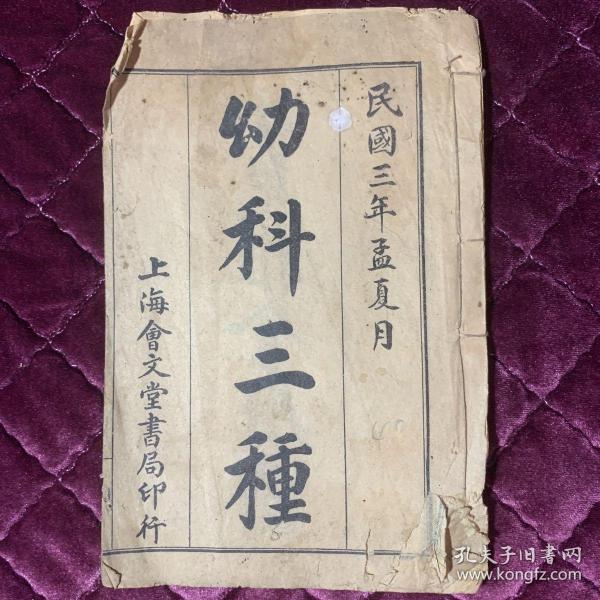 民國三年孟夏月
幼科三種
上海會文堂書局印行
孔夫子旧书网
www.kongfz.com